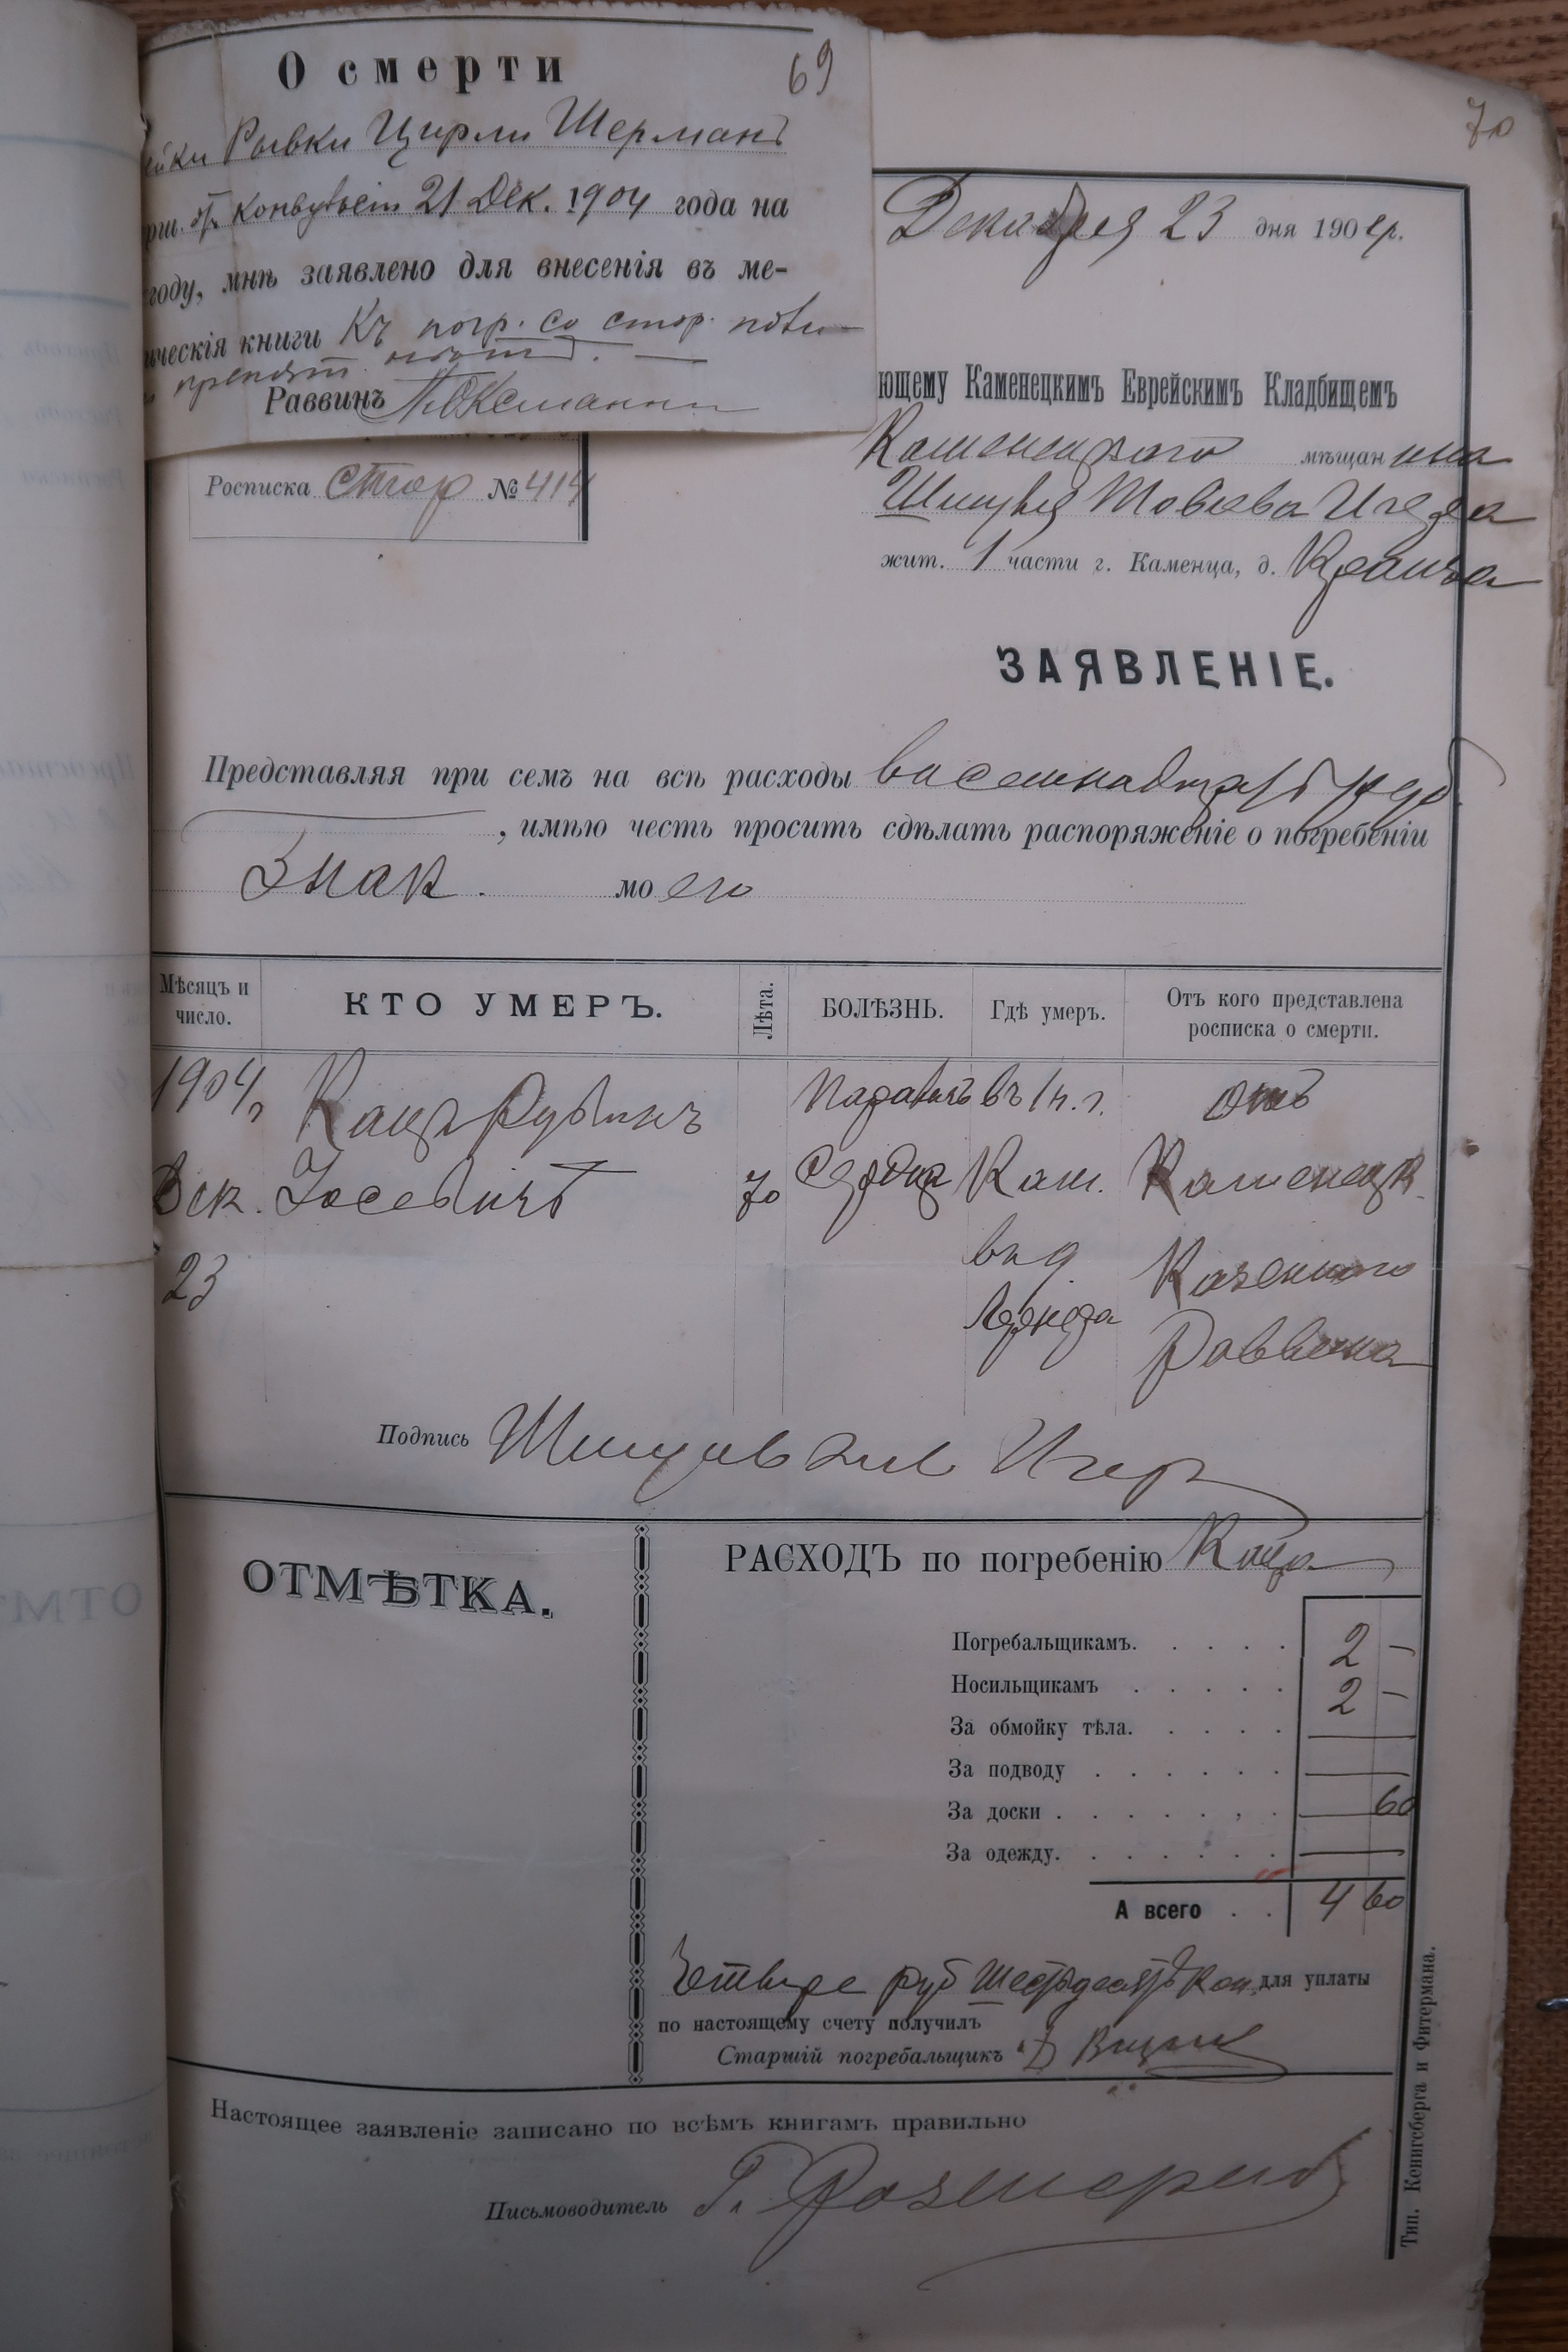 О смерти
69
70
Рывки Цирли Шерманъ
21 Дек. 1904 года на
году, мнѣ заявлено для внесенія въ ме-
ическія книги Къ погр. со стор.
Раввинъ
Декабря 23 дня 1904 г.
ющему Каменецкимъ Еврейскимъ Кладбищемъ
Каменецкого мѣщанина
Росписка № 414
жит. 1 части г. Каменца, д.
ЗАЯВЛЕНІЕ.
Представляя при семъ на всѣ расходы
, имѣю честь просить сдѣлать распоряженіе о погребеніи
Знак. моего
Мѣсяцъ и число.
КТО УМЕРЪ.
Лѣта.
БОЛѢЗНЬ.
Гдѣ умеръ.
Отъ кого представлена росписка о смерти.
1904 г
Дек.
23
Кацъ Рувинъ
Іосевичъ
70
Параличъ
Сердца
въ 1 ч. г.
Кам.
отъ
Каменецк.
Казенного
Раввина
Подпись
ОТМѢТКА.
РАСХОДЪ по погребенію Каца
Погребальщикамъ. 2 —
Носильщикамъ 2 —
За обмойку тѣла. —
За подводу —
За доски — 60
За одежду. —
А всего 4 60
Четыре руб Шестдесятъ Коп. для уплаты
по настоящему счету получилъ
Старшій погребальщикъ
Настоящее заявленіе записано по всѣмъ книгамъ правильно
Письмоводитель
Тип. Кенигсберга и Фитермана.